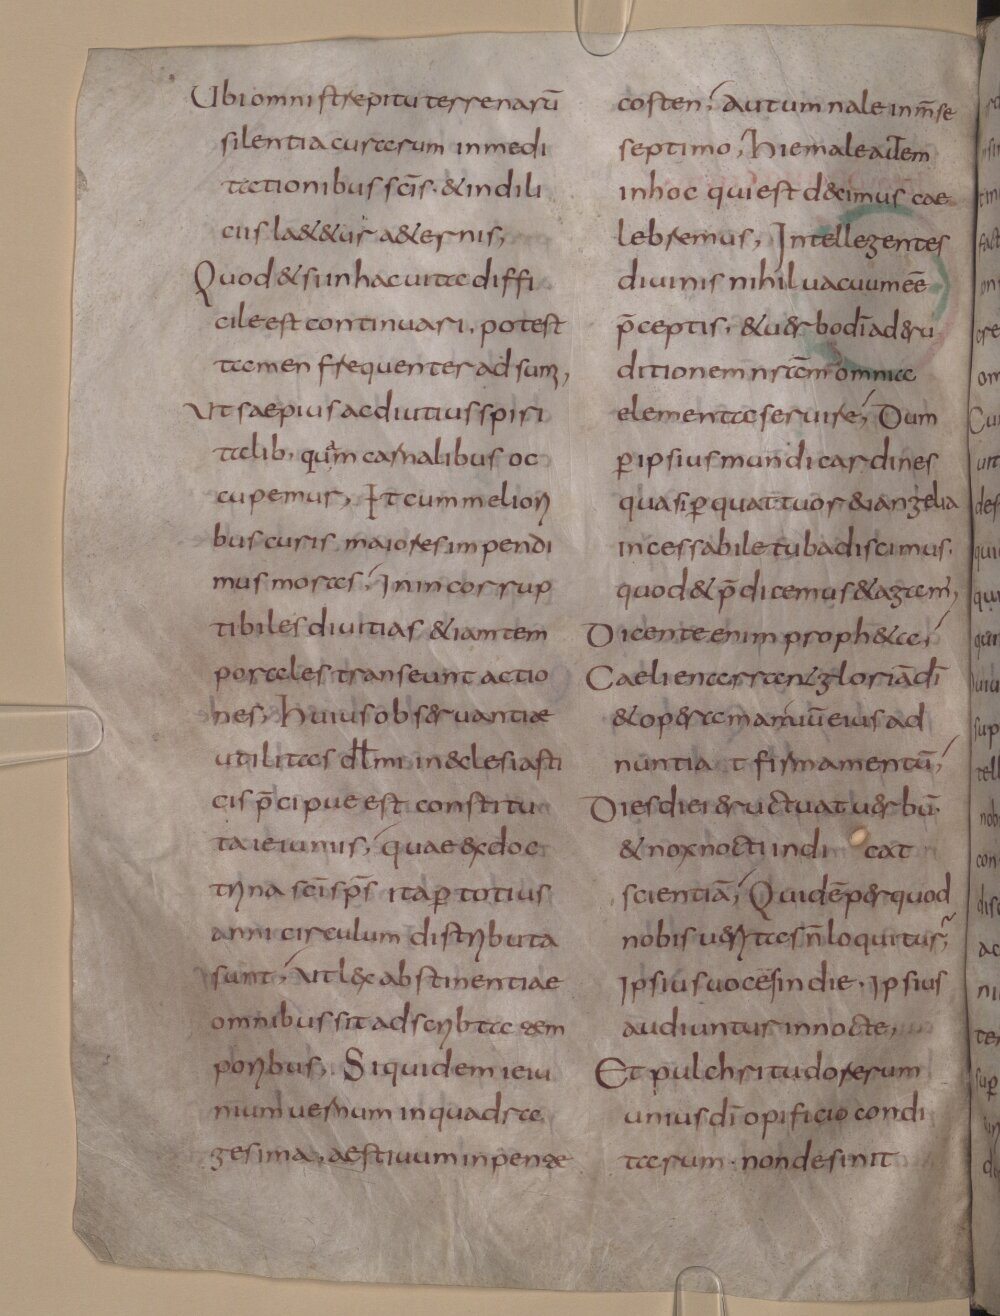 Ubi omni strepitu terrenarū
silentia curarum in medi
tationibus scīs · & in deli
ciis la&&ur a&ernis,
Quod &si in hac uita diffi
cile est continuari, potest
tamen frequenter ad sumi,
Ut saepius ac diutius spiri
talib, quam carnalibus oc
cupemur, Et cum meliori
bus curis maiores impendi
mus moras, In incorrup
tibiles diuitias &iam tem
porales transeunt actio
nes, Huius obseruantiae
utilitas dłmi in &clesiasti
cis p̄cipue est constitu
ta ieiuniis, quae &xdoc
trina scī sp̄s ita ꝑ totius
anni circulum distributa
sunt, Ut l&x abstinentiae
omnibus sit adscribta tem
poribus, Siquidem ieiu
nium uernum in quadra
gesima, aestiuum in pente
costen, autumnale in m̄se
septimo, Hiemale aut̄em
in hoc qui est d&cimus cae
lebremus, Intellegentes
diuinis nihil uacuum eē
p̄ceptis, & u&rbo dī ad &ru
ditionem nrām omnia
elementa seruire, Dum
ꝑ ipsius mundi cardines
quasi ꝑ quattuor &uangelia
incessabile tuba discimus,
quod & p̄dicemus & agam,
Dicente enim proph&a,
Caeli enarrant gloriā dī
& op&ra manuū eius ad
nuntiat firmamentū,
Dies diei &ructuat u&rbū
& nox nocti indicat
scientiā, Quid ē p&r quod
nobis u&ritas n̄ loquitur,
Ipsius uoces in die, Ipsius
audiuntur in nocte,
Et pulchritudo rerum
unius dī opificio condi
tarum · non desinit